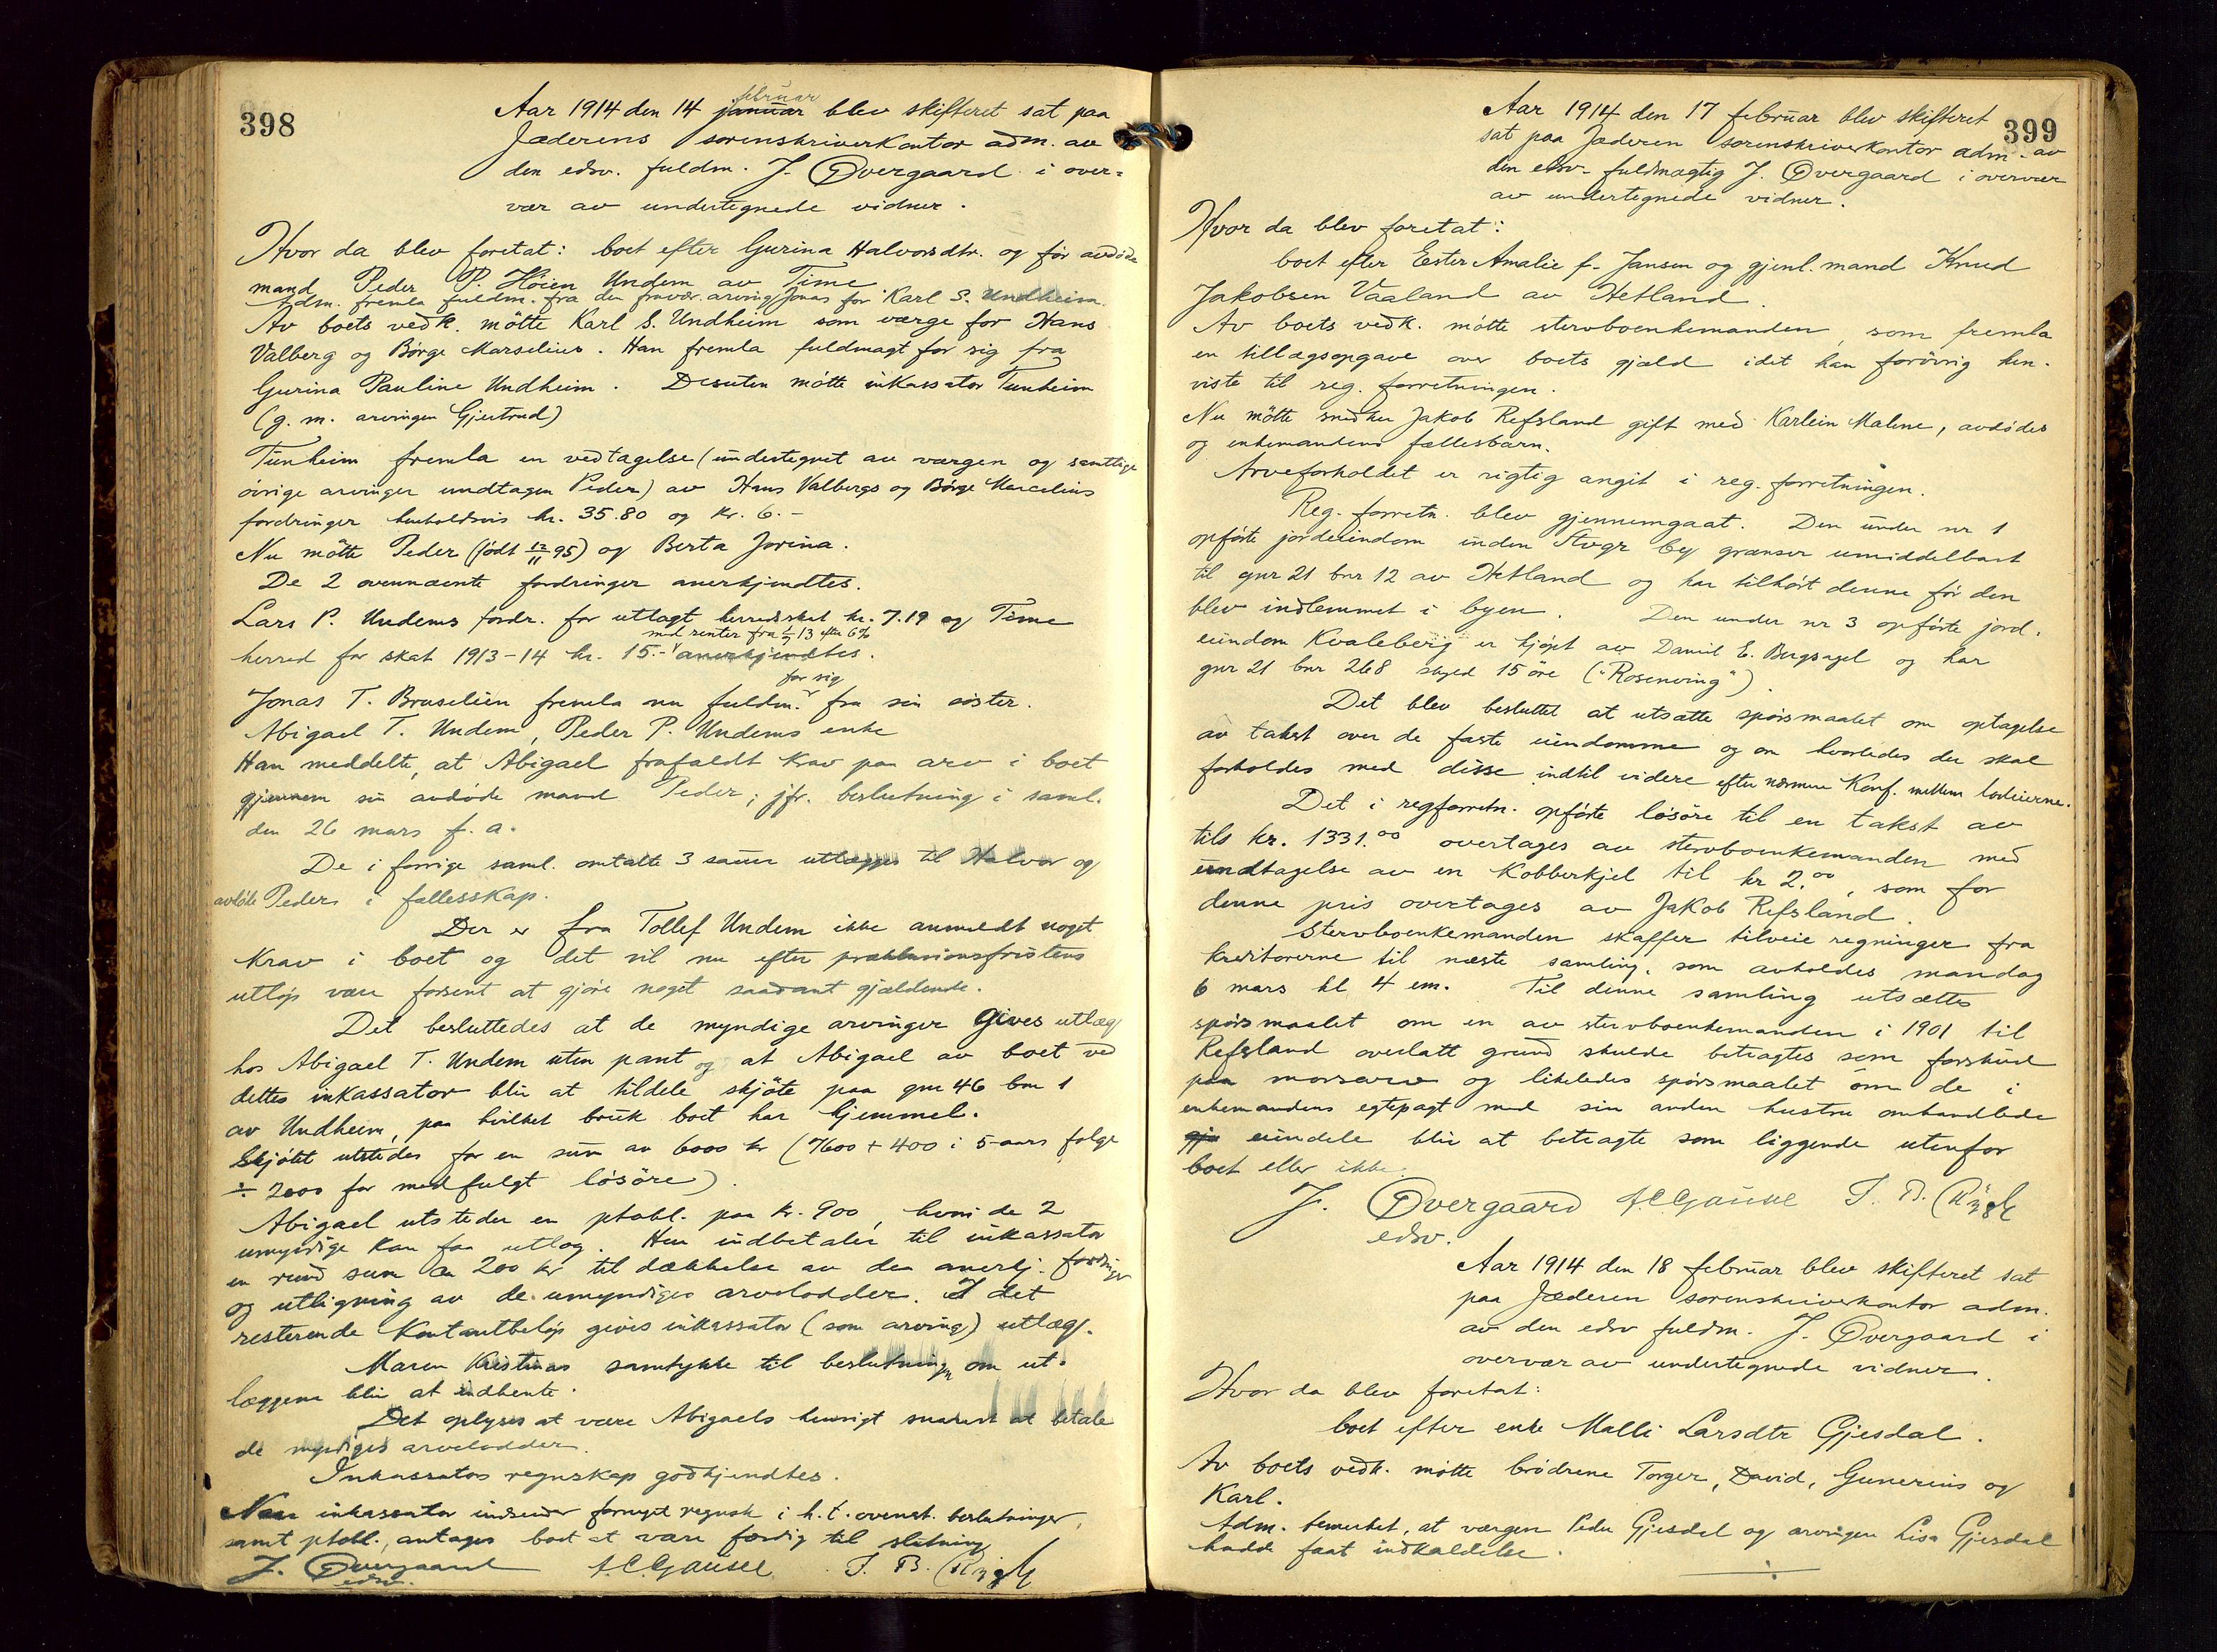 398
Aar 1914 den 14 januar februar blev skifteret sat paa
Jæderens sorenskriverkontor adm. av
den edsv. fuldm. J. Øvergaard i over-
vær av undertegnede vidner.
Hvor da blev foretat: boet efter Gurina Halvorsdtr. og før avdøde
mand Peder P. Høien Undem av Time
Adm. fremla fuldm. fra den fravær. arving Jonas for Karl S. Undheim.
Av boets vedk. møtte Karl S. Undheim som værge for Hans
Valberg og Børge Marselius. Han fremla fuldmagt for sig fra
Gurina Pauline Undheim. Desuten møtte inkassator Tunheim
(g. m. arvingen Gjertrud)
Tunheim fremla en vedtagelse (undertegnet av værgen og samtlige
øvrige arvinger undtagen Peder) av Hans Valbergs og Børge Marcelius
fordringer henholdsvis kr. 35.80 og kr. 6.-
Nu møtte Peder (født 12/11 95) og Berta Jorina.
De 2 ovennævnte fordringer anerkjendtes.
Lars P. Undems fordr. for utlagt herredsskat kr. 7.19 og Time
med renter fra 1/1 13 efter 6%
herred for skat 1913-14 kr. 15.- anerkjendtes.
for sig
Jonas T. Bruselien fremla nu fuldm. fra sin søster.
Abigael T. Undem, Peder P. Undems enke
Han meddelte, at Abigael frafaldt krav paa arv i boet
gjennem sin avdøde mand Peder; jfr. beslutning i saml.
den 26 mars f. a.
De i forrige saml. omtalte 3 sauer utlægges til Halvor og
avdøde Peders i fællesskap.
Der er fra Tollef Undem ikke anmeldt noget
krav i boet og det vil nu efter præklusionsfristens
utløp være forsent at gjøre noget saadant gjældende.
Det besluttedes at de myndige arvinger gives utlæg
hos Abigael T. Undem uten pant og at Abigael av boet ved
dettes inkassator blir at tildele skjøte paa gnr 46 bnr 1
av Undheim, paa hvilket bruk boet har hjemmel.
Skjøtet utstedes for en sum av 6000 kr (7600 + 400 i 5-aars følge
÷ 2000 for medfulgt løsøre).
Abigael utsteder en ptobl. paa kr. 900, hvori de 2
umyndige kan faa utlæg. Hun indbetaler til inkassator
en rund sum av 200 kr til dækkelse av de anerkj. fordringer
og utligning av de umyndiges arvelodder. I det
resterende kontantbeløp gives inkassator (som arving) utlæg.
Maren Kristines samtykke til beslutningen om ut-
læggene blir at indhente.
Det oplyses at være Abigaels hensigt snarest at betale
de myndiges arvelodder.
Inkassators regnskap godkjendtes.
Naar inkassator indsender fornyet regnsk i h. t. ovenst. beslutninger,
samt ptobl., antages boet at være færdig til slutning
J. Øvergaard A.C. Gausel T. B.
edsv.
399
Aar 1914 den 17 februar blev skifteret
sat paa Jæderen sorenskriverkontor adm. av
den edsv. fuldmægtig J. Øvergaard i overvær
av undertegnede vidner.
Hvor da blev foretat:
boet efter Ester Amalie f. Jansen og gjenl. mand Knud
Jakobsen Vaaland av Hetland.
Av boets vedk. møtte stervboenkemanden, som fremla
en tillægsopgave over boets gjæld idet han forøvrig hen-
viste til reg. forretningen.
Nu møtte snedker Jakob Refsland gift med Karlein Malene, avdødes
og enkemandens fællesbarn.
Arveforholdet er rigtig angit i reg. forretningen.
Reg. forretn. blev gjennemgaat. Den under nr 1
opførte jordeiendom inden Stvgr by grænser umiddelbart
til gnr 21 bnr 12 av Hetland og har tilhørt denne før den
blev indlemmet i byen. Den under nr 3 opførte jord-
eiendom Kvaleberg er kjøpt av Daniel E. Bergsagel og har
gnr 21 bnr 268 skyld 15 øre ("Rosenving").
Det blev besluttet at utsætte spørsmaalet om optagelse
av takst over de faste eiendomme og om hvorledes der skal
forholdes med disse indtil videre efter nærmere konf. mellem lodeierne.
Det i regforretn. opførte løsøre til en takst av
tils kr. 1331.00 overtages av stervboenkemanden med
undtagelse av en kobberkjel til kr 2.00, som for
denne pris overtages av Jakob Refsland.
Stervboenkemanden skaffer tilveie regninger fra
kreditorerne til næste samling, som avholdes mandag
6 mars kl 4 em. Til denne samling utsættes
spørsmaalet om en av stervboenkemanden i 1901 til
Refsland overlatt grund skulde betragtes som forskud
paa morsarv og likeledes spørsmaalet om de i
enkemandens egtepagt med sin anden hustru omhandlede
gje eiendele blir at betragte som liggende utenfor
boet eller ikke.
J. Øvergaard A.C. Gausel T. B.
edsv.
Aar 1914 den 18 februar blev skifteret sat
paa Jæderen sorenskriverkontor adm.
av den edsv fuldm. J. Øvergaard i
overvær av undertegnede vidner.
Hvor da blev foretat:
boet efter enke Malli Larsdtr Gjesdal.
Av boets vedk. møtte brødrene Torger, David, Gunerius og
Karl.
Adm. bemerket, at værgen Peder Gjesdal og arvingen Lisa Gjesdal
hadde faat indkaldelse.